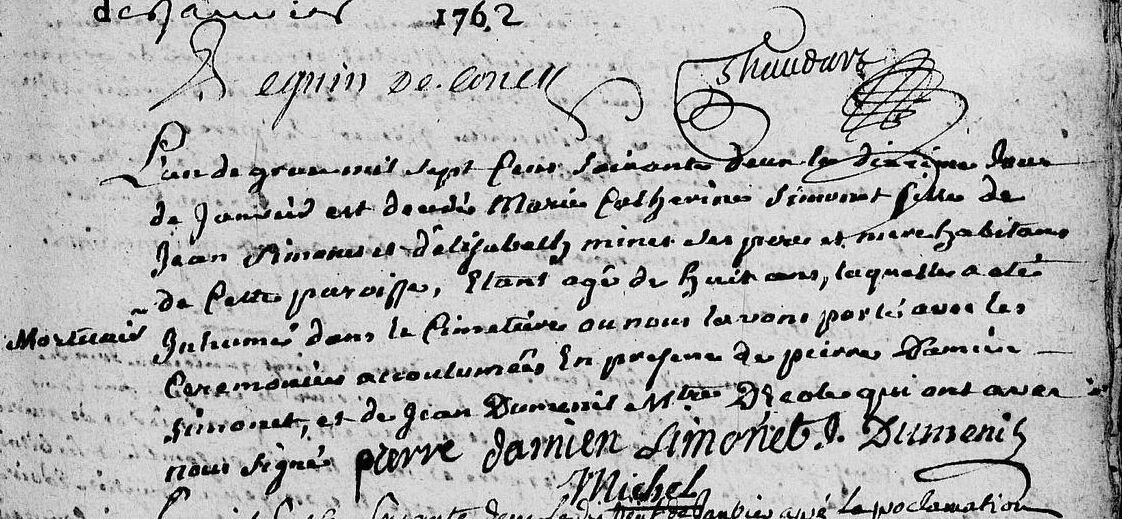 de Janvier 1762
Requin De Coucy Thaudart
L'an de grace mil sept Cent soixante deux le dixieme Jour
de Janvier est decedé Marie Catherine Simonet fille de
Jean Simonet et d'élizabeth minet ses pere et mere habitans
de Cette paroisse, Etant agé de huit ans, laquelle a eté
Mortuair Inhumé dans le Cimetiere ou nous l'avons porté avec les
Ceremonies accoutumées En presence de pierre Damien
Simonet, et de Jean Dumenil Mtre D'Ecole qui ont avec
nous signé pierre damien Simonet J. Dumenil
Michel
de Janvier apré la proclamation